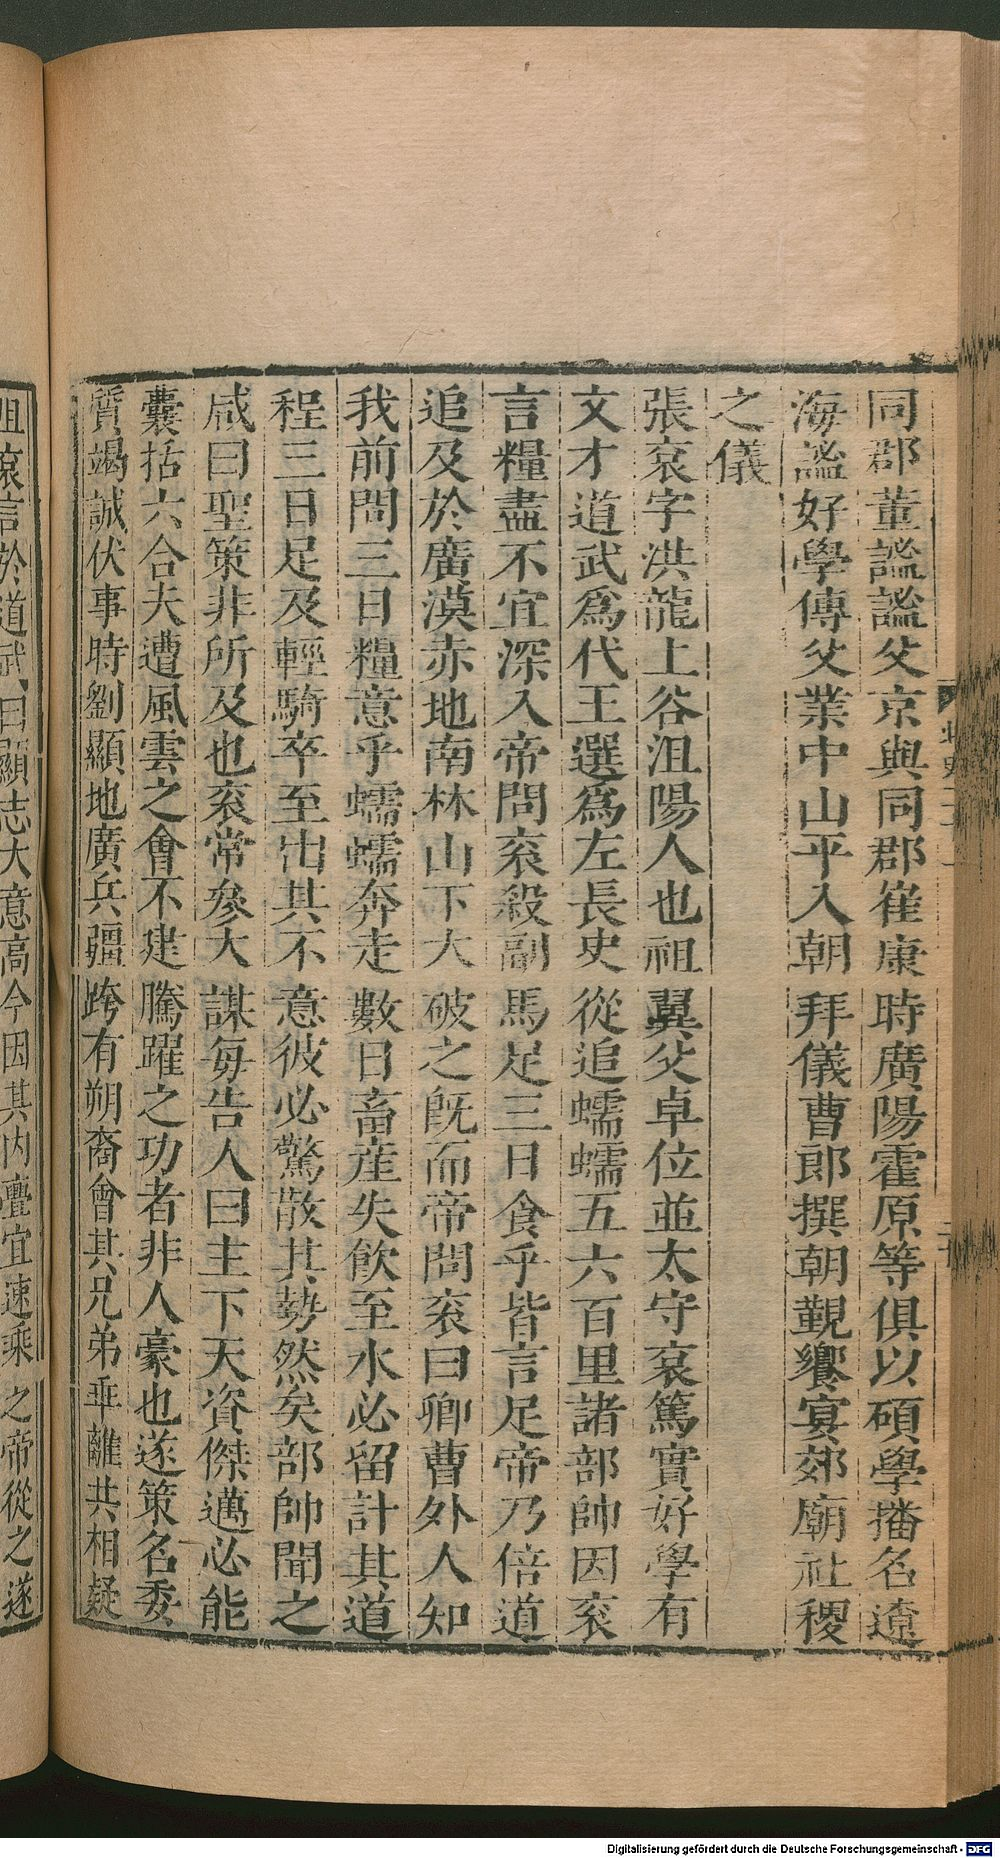 同郡董謐謐父京與同郡崔康時廣陽霍原等俱以碩學播名遼
海謐好學傳父業中山平入朝拜儀曹郎撰朝覲饗宴郊廟社稷
之儀
張袞字洪龍上谷沮陽人也祖翼父卓位並太守袞篤實好學有
文才道武爲代王選爲左長史從追蠕蠕五六百里諸部帥因袞
言糧盡不宜深入帝問袞殺副馬足三日食乎皆言足帝乃倍道
追及於廣漠赤地南林山下大破之旣而帝問袞曰卿曹外人知
我前問三日糧意乎蠕蠕奔走數日畜産失飮至水必留計其道
程三日足及輕騎卒至出其不意彼必驚散其勢然矣部帥聞之
咸曰聖策非所及也袞常參大謀每告人曰主下天資傑邁必能
囊括六合夫遭風雲之會不建騰躍之功者非人豪也遂策名委
質竭誠伏事時劉顯地廣兵疆跨有朔裔會其兄弟乖離共相疑
阻袞言於道武曰顯志大意高今因其內舋宜速乘之帝從之遂
Digitalisierung gefördert durch die Deutsche Forschungsgemeinschaft - DFG